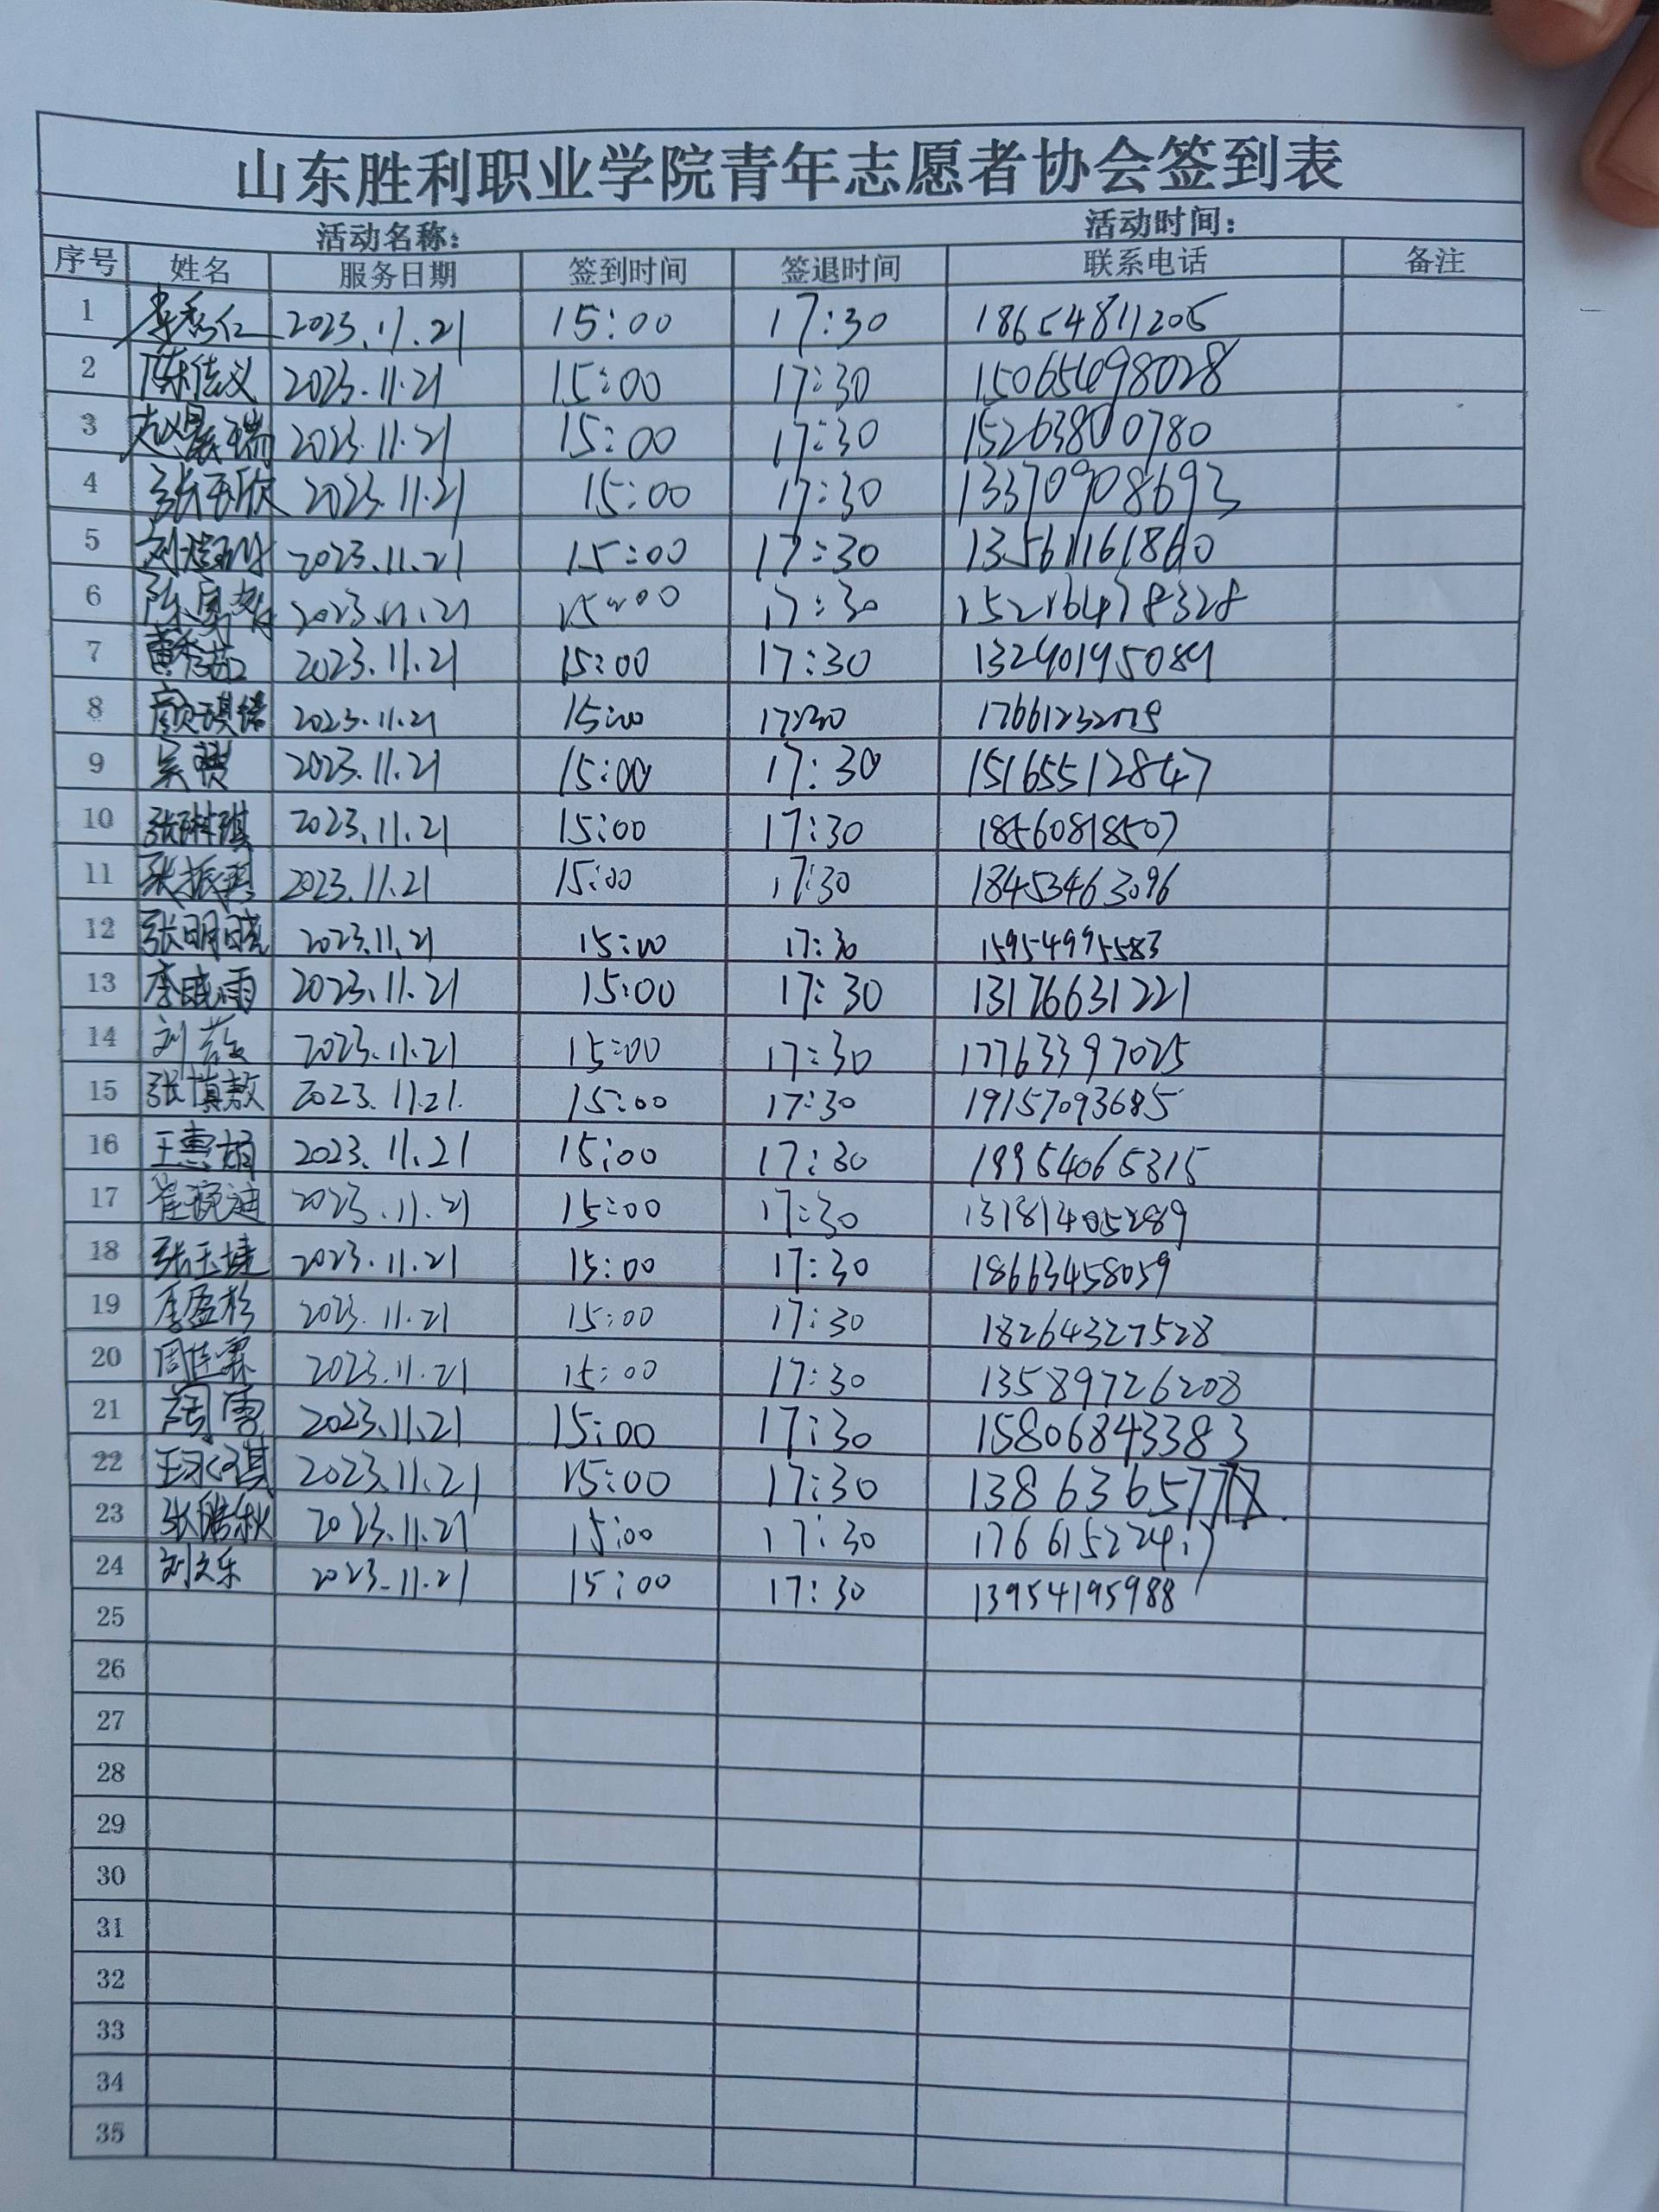 山东胜利职业学院青年志愿者协会签到表
活动名称: 活动时间:
序号 姓名 服务日期 签到时间 签退时间 联系电话 备注
1 李秀仁 2023.11.21 15:00 17:30 18654811205
2 陈佳义 2023.11.21 15:00 17:30
3 赵晨瑞 2023.11.21 15:00 17:30 15263800780
4 张玉欣 2023.11.21 15:00 17:30 13370908693
5 2023.11.21 15:00 17:30 13561161860
6 2023.11.21 15:00 17:30
7 曹秀茹 2023.11.21 15:00 17:30
8 颜琪锦 2023.11.21 15:00 17:30
9 吴赟 2023.11.21 15:00 17:30 15165512847
10 张琳琪 2023.11.21 15:00 17:30 18560818507
11 张振琪 2023.11.21 15:00 17:30 18453463096
12 张明晓 2023.11.21 15:00 17:30 15954995583
13 李晓雨 2023.11.21 15:00 17:30 13176631221
14 刘 2023.11.21 15:00 17:30 17763397025
15 张慎敖 2023.11.21. 15:00 17:30 19157093685
16 王惠娟 2023.11.21 15:00 17:30 19954065315
17 崔琬迪 2023.11.21 15:00 17:30
18 张玉婕 2023.11.21 15:00 17:30 18663458059
19 李盈杉 2023.11.21 15:00 17:30 18264327528
20 周佳霖 2023.11.21 15:00 17:30 13589726208
21 周雪 2023.11.21 15:00 17:30 15806843383
22 王永琪 2023.11.21 15:00 17:30
23 张皓秋 2023.11.21 15:00 17:30 17661522417
24 刘文乐 2023.11.21 15:00 17:30 13954195988
25
26
27
28
29
30
31
32
33
34
35